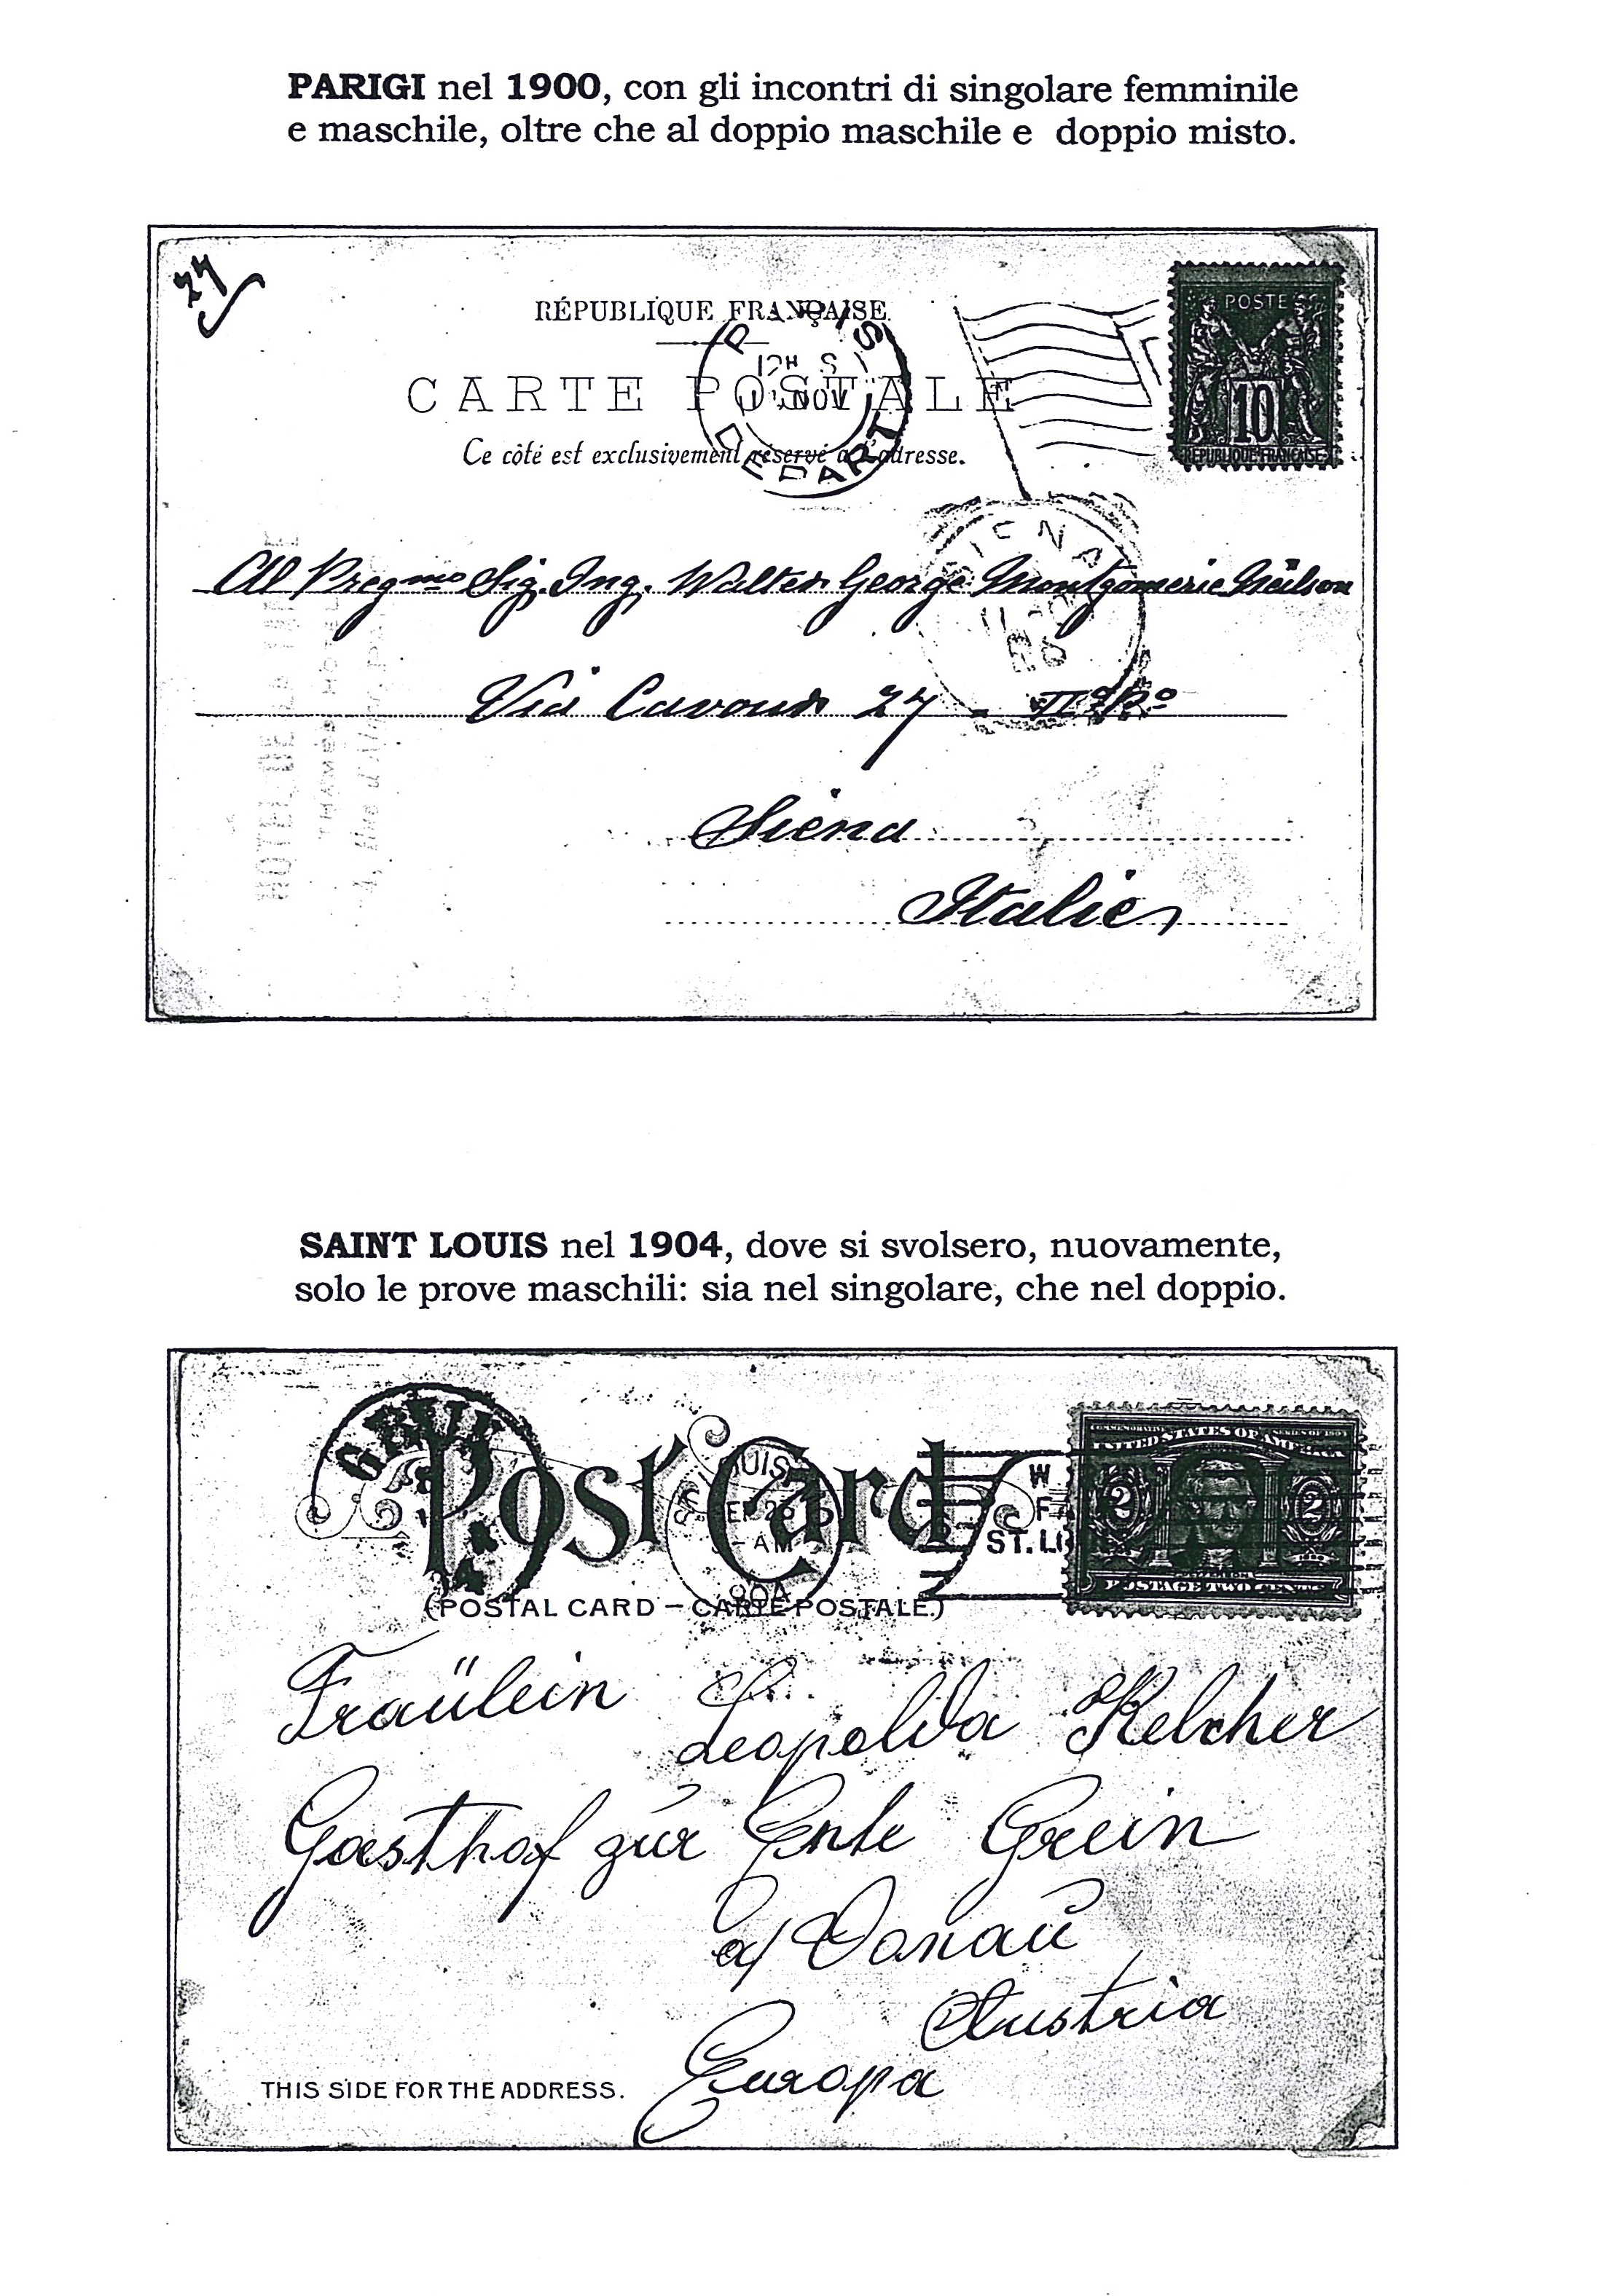 PARIGI nel 1900, con gli incontri di singolare femminile
e maschile, oltre che al doppio maschile e doppio misto.
24
RÉPUBLIQUE FRANÇAISE
CARTE POSTALE
Ce côté est exclusivement réservé à l'adresse.
12H S
NOV
DEPART
POSTE
10
REPUBLIQUE FRANÇAISE
SIENA
Al Pregmo Sig. Ing. Walter George Montgomerie Neilson
Via Cavour 27 - II° Po
Siena
Italie
SAINT LOUIS nel 1904, dove si svolsero, nuovamente,
solo le prove maschili: sia nel singolare, che nel doppio.
Post Card
(POSTAL CARD – CARTE POSTALE.)
ST. L
UNITED STATES OF AMERICA
2 2
POSTAGE TWO CENTS
Fraülein Leopolda Kelcher
Gasthof zur Ente Grein
a/ Donau
Austria
Europa
THIS SIDE FOR THE ADDRESS.